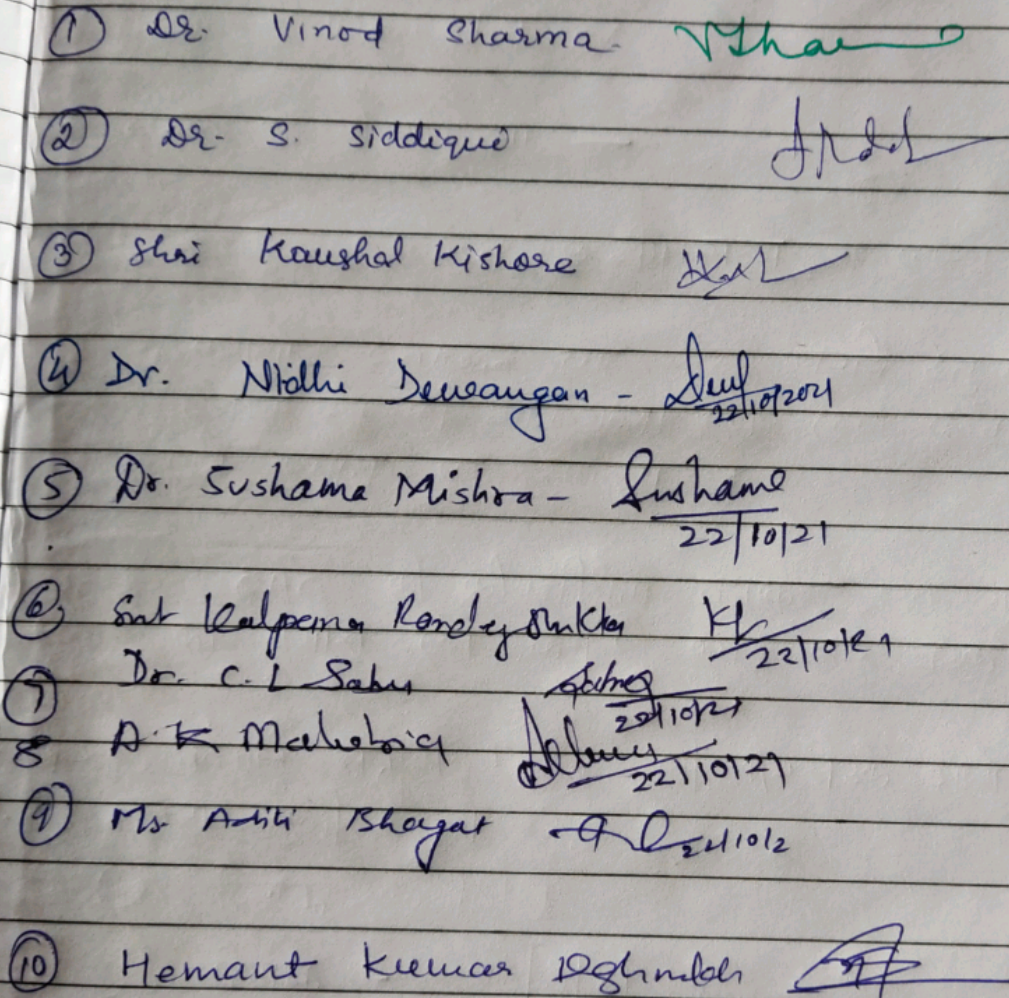 ① Dr. Vinod Sharma.
② Dr- S. Siddiqui
③ Shri Kaushal Kishore
④ Dr. Nidhi Dewangan - 22/10/2021
⑤ Dr. Sushama Mishra - Sushama
22/10/21
⑥ Smt Kalpana Pandey Shukla 22/10/21
⑦ Dr. C. L Sahu 22/10/21
8 A. K 22/10/21
⑨ Ms. Aditi Bhagat
⑩ Hemant Kumar